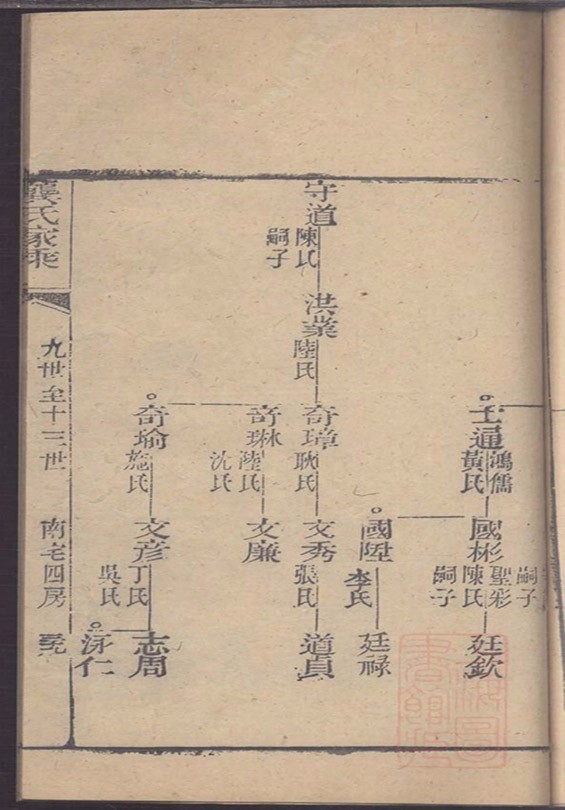 士通
鴻儒
黃氏
國彬
嗣子
聖彩
陳氏
嗣子
廷欽
國陞
李氏
廷祿
守道
陳氏
嗣子
洪業
陸氏
奇璋
耿氏
文秀
張氏
道貞
奇琳
陸氏
沈氏
文廉
奇瑜
施氏
文彦
丁氏
吳氏
志周
仁
龔氏家乘
九世至十三世
南宅四房